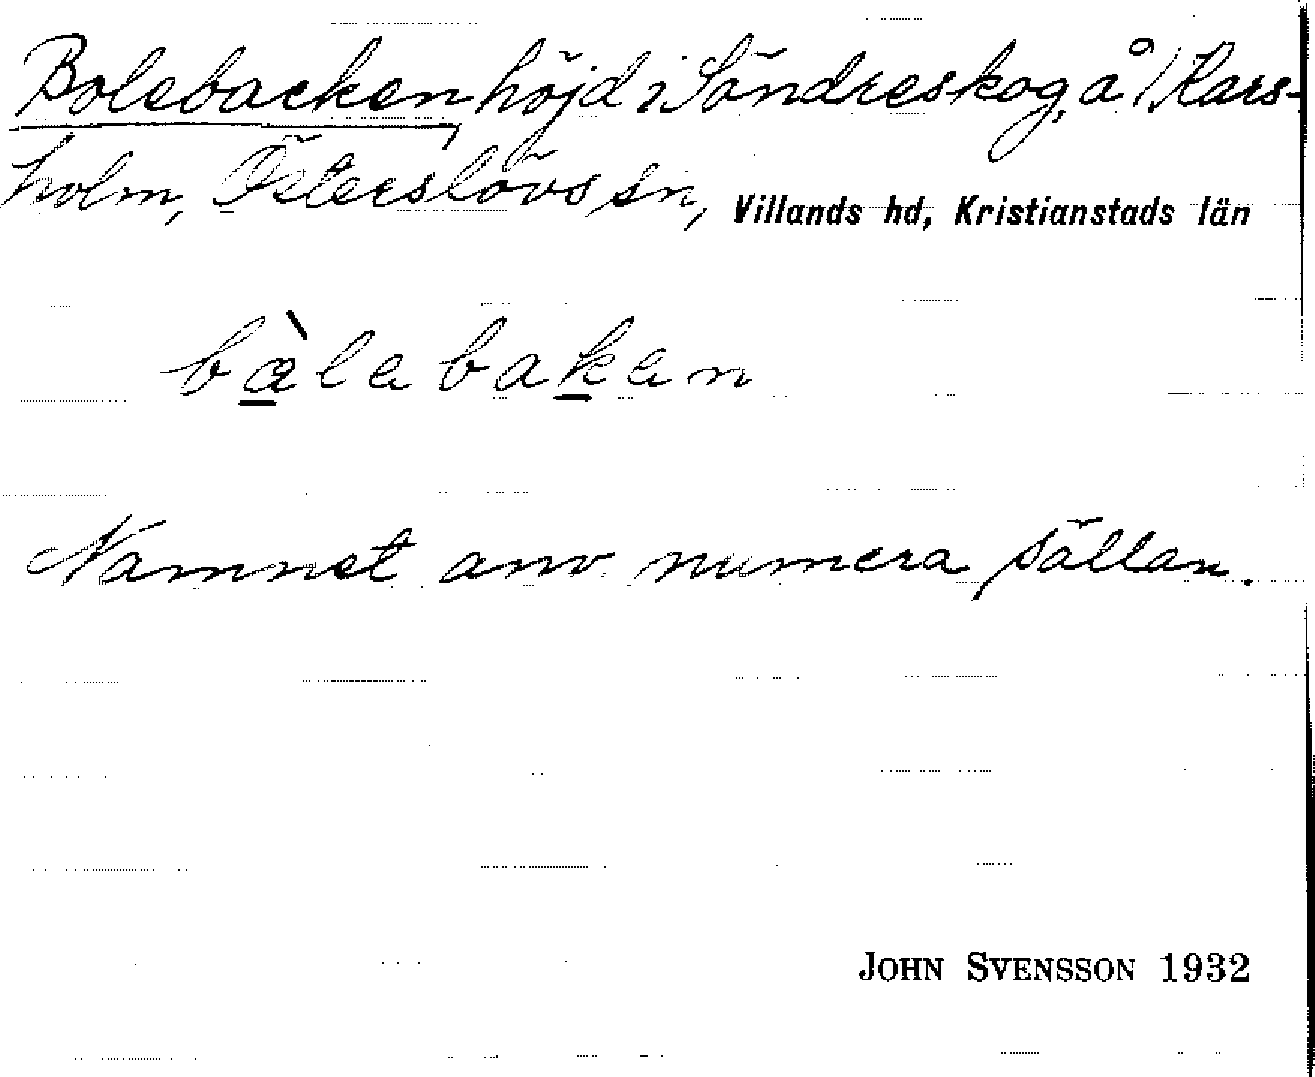 Bolebacken, höjd i Söndreskog, å / Kars-
holm, Österslövs sn, Villands hd, Kristianstads län
bàlebaken
Namnet anv numera sällan.
JOHN SVENSSON 1932